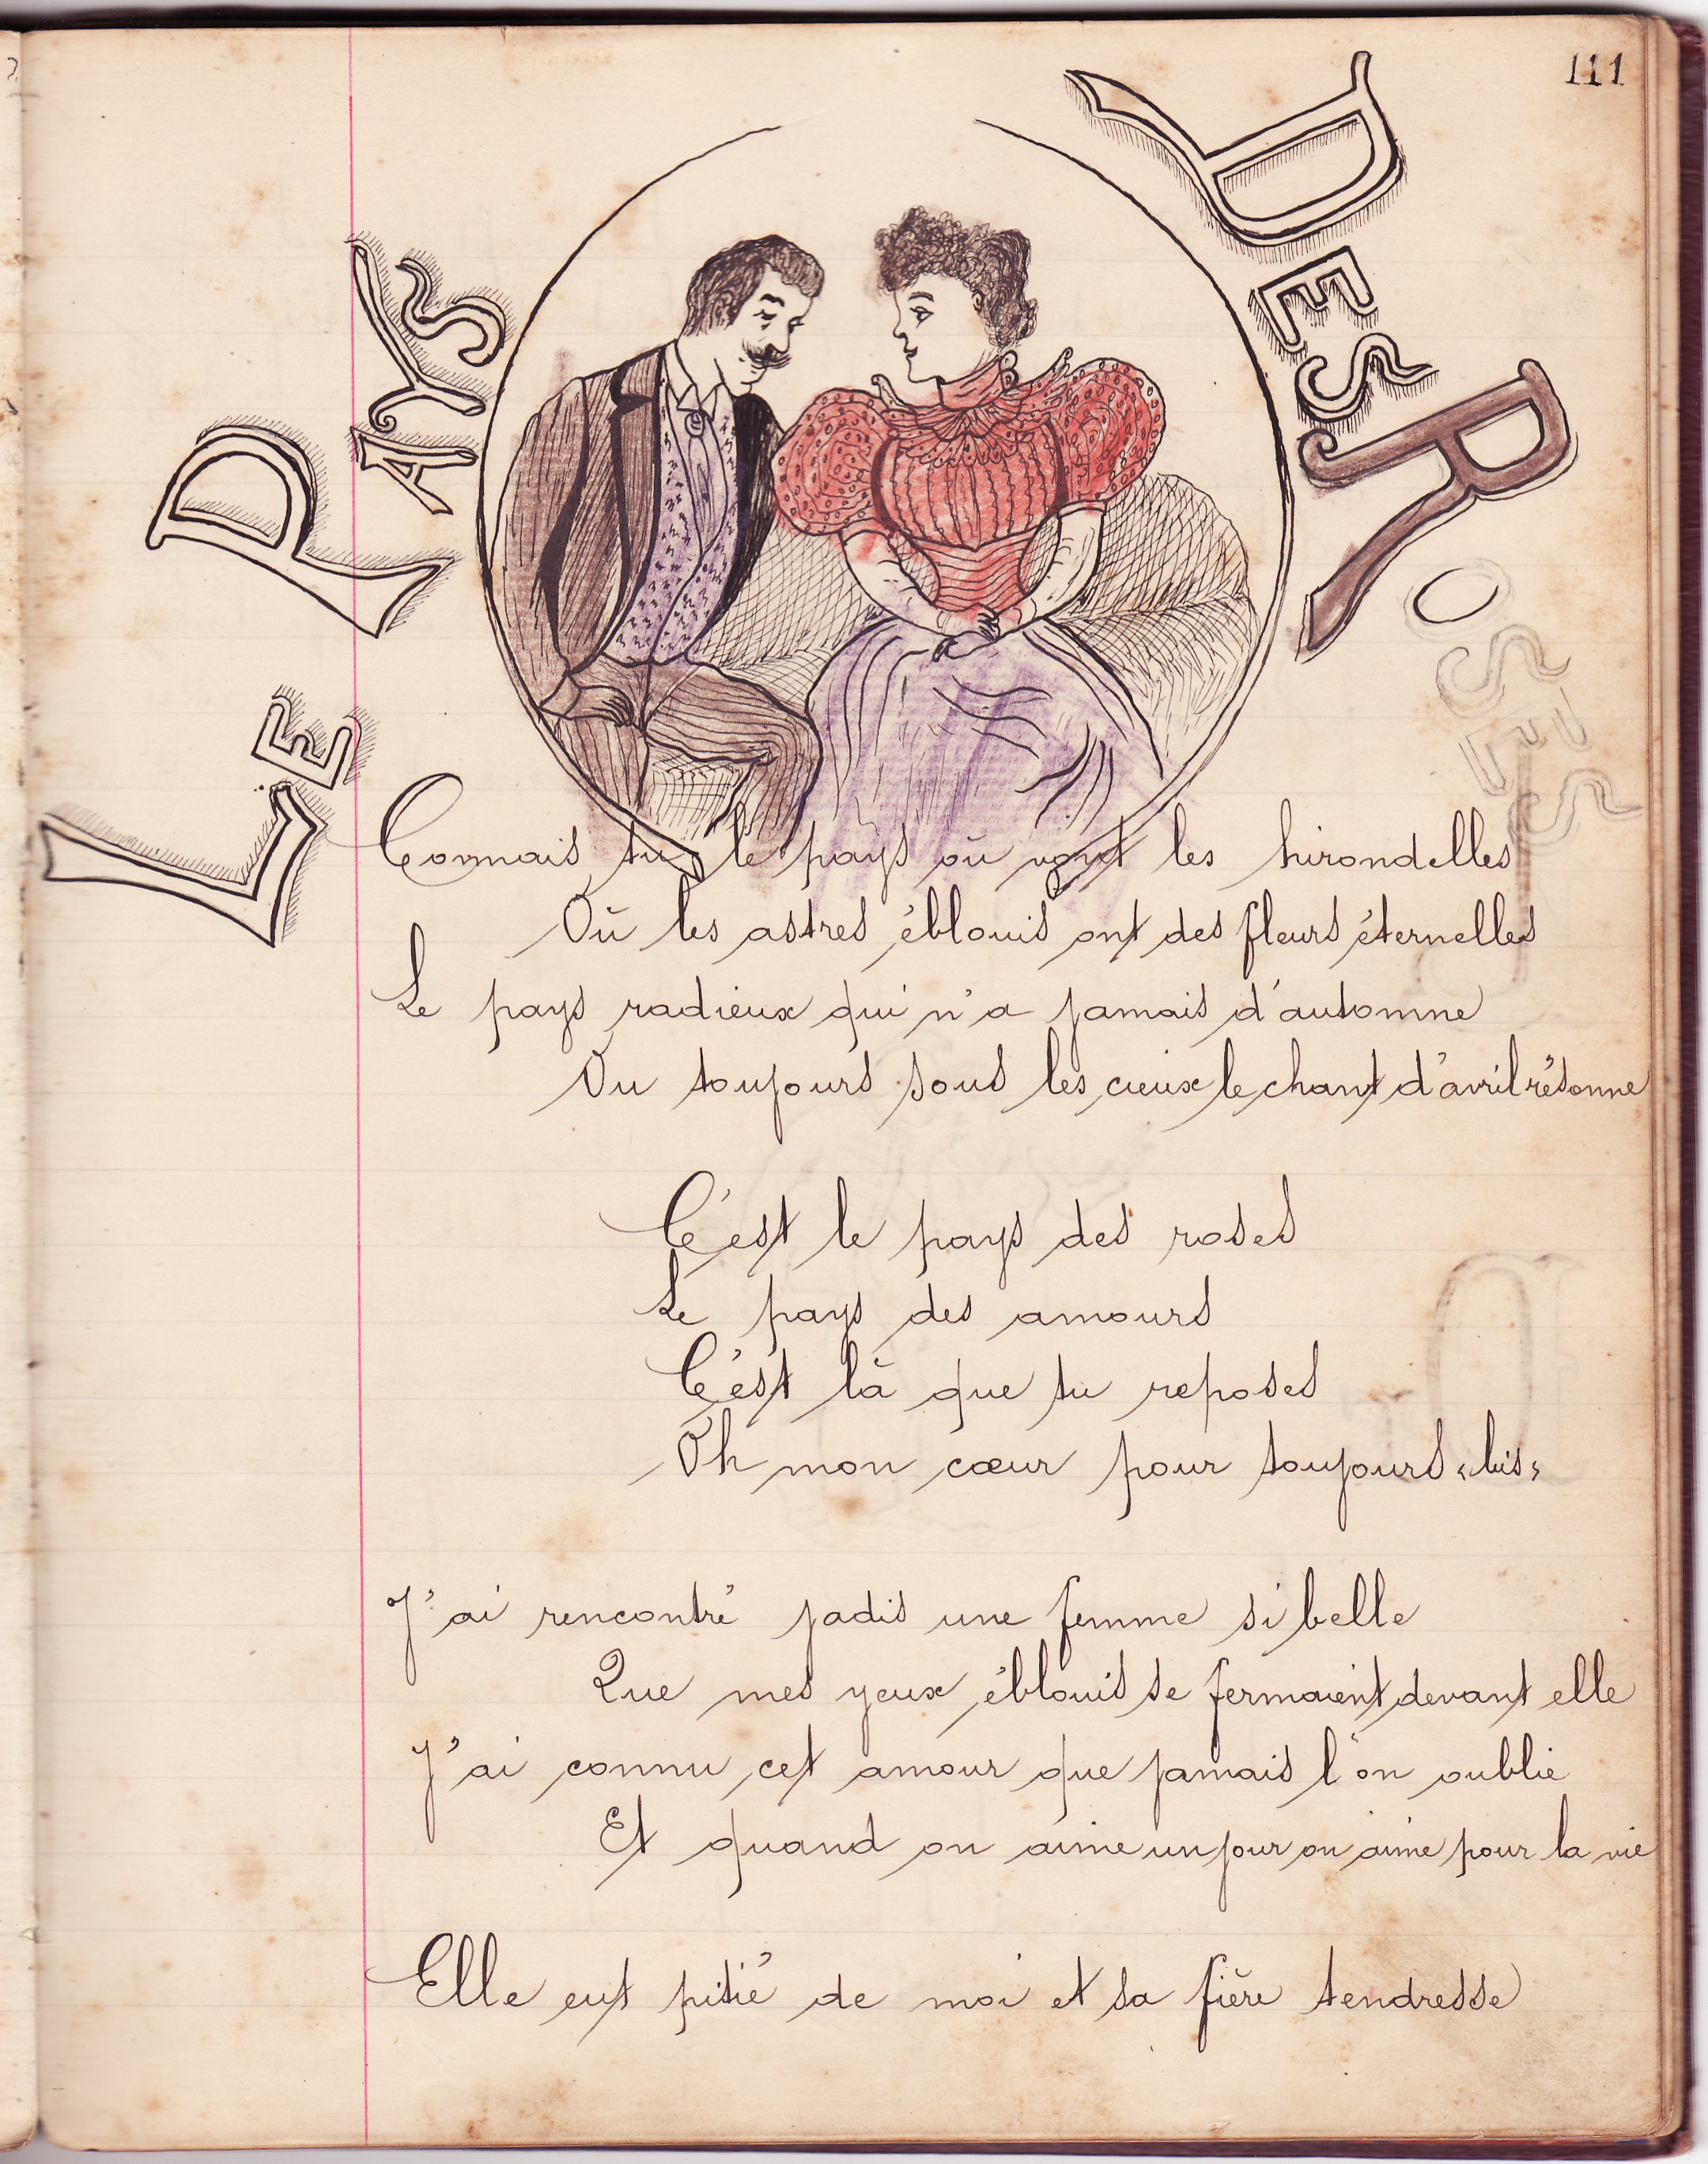 111
LE PAYS DES ROSES
Connais tu le pays où vont les hirondelles
Où les astres éblouis ont des fleurs éternelles
Le pays radieux qui n'a jamais d'automne
Ou toujours sous les cieux le chant d'avril résonne
C'est le pays des roses
Le pays des amours
C'est là que tu reposes
Oh mon cœur pour toujours «bis»
J'ai rencontré jadis une femme si belle
Que mes yeux éblouis se fermaient devant elle
J'ai connu cet amour que jamais l'on oublie
Et quand on aime un jour on aime pour la vie
Elle eut pitié de moi et sa fière tendresse